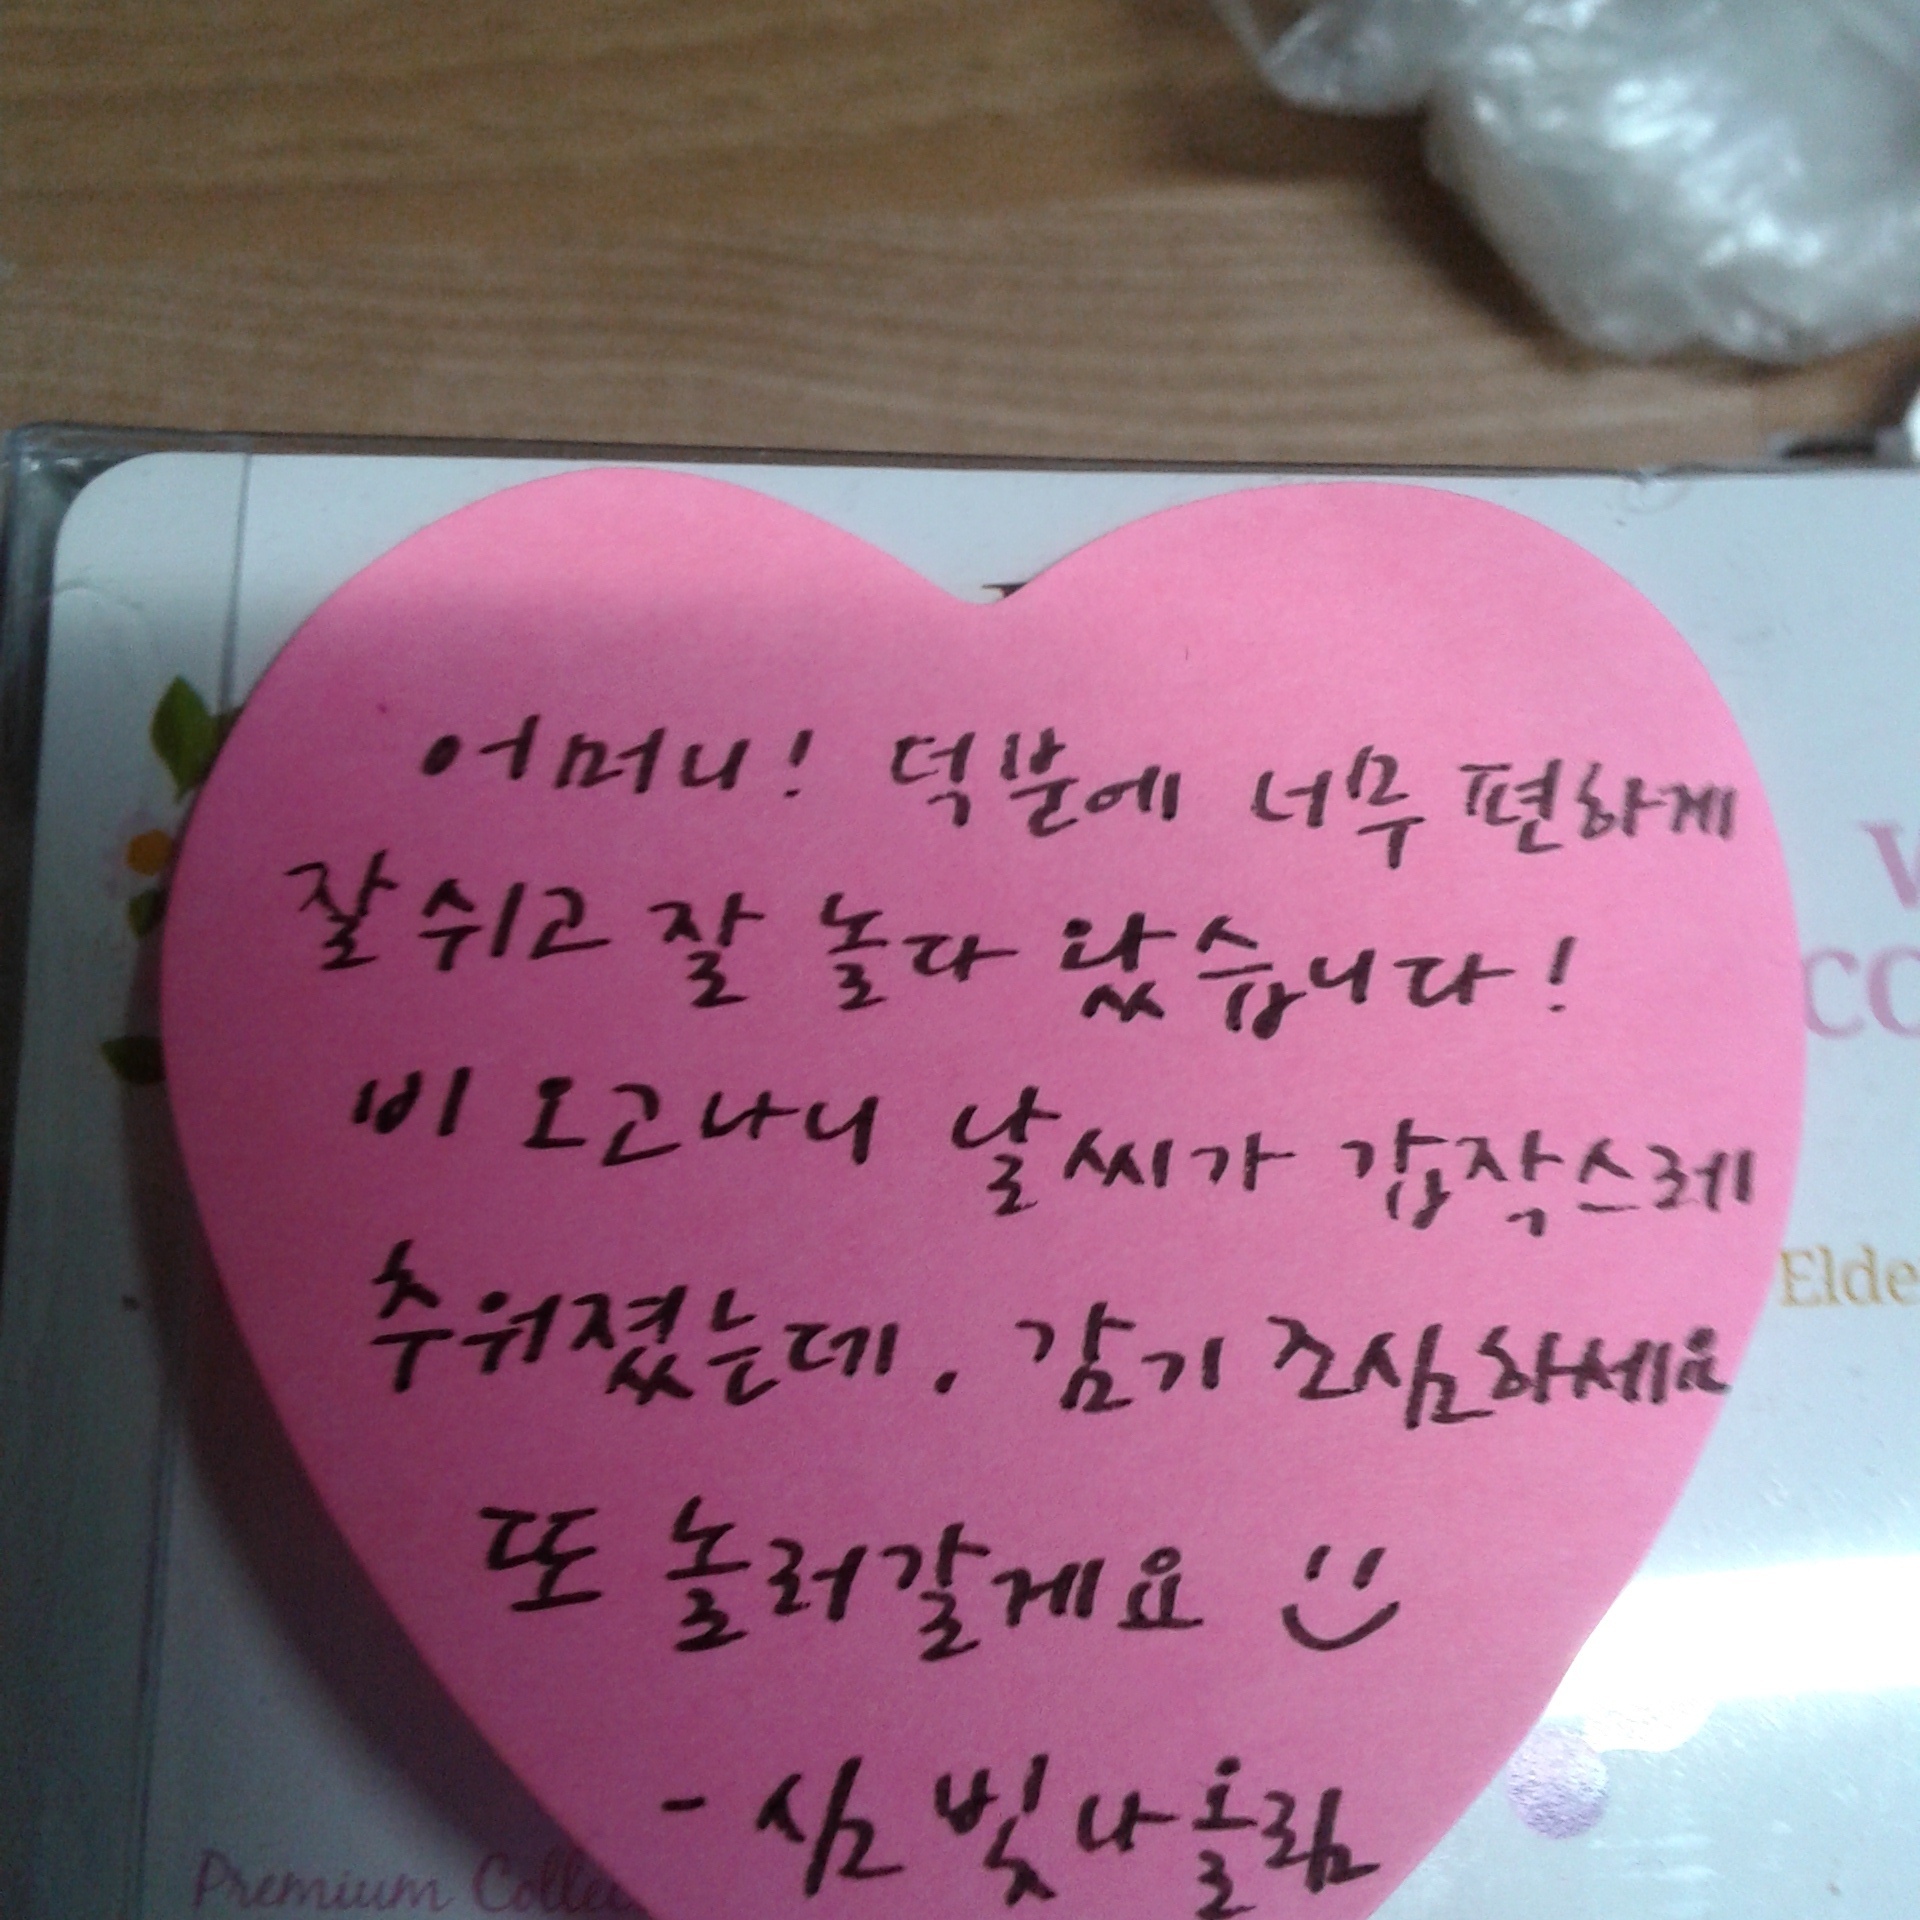 어머니! 덕분에 너무 편하게
잘 쉬고 잘 놀다 왔습니다!
비 오고나니 날씨가 갑작스레
추워졌는데, 감기 조심하세요
또 놀러갈게요
- 심 빛나 올림
CO
Elde
Premium Collec